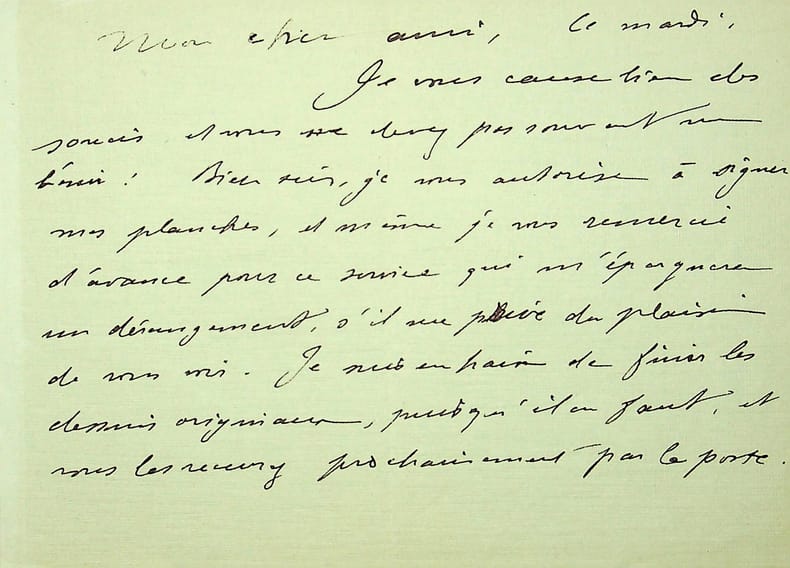 Mon cher ami, Ce mardi.
Je vous cause bien des
soucis et vous ne devez pas souvent me
bénir ! Bien sûr, je vous autorise à signer
mes planches, et même je vous remercie
d'avance pour ce service qui m'épargnera
un dérangement, s'il me prive du plaisir
de vous voir. Je suis en train de finir les
dessins originaux, puisqu'il en faut, et
vous les recevrez prochainement par la poste.